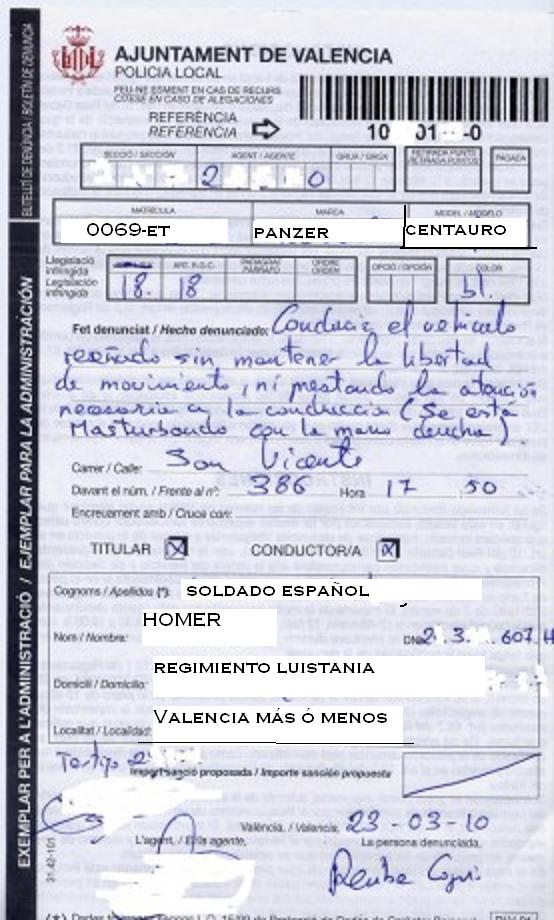 AJUNTAMENT DE VALENCIA
POLICIA LOCAL
FEU-NE ESMENT EN CAS DE RECURS
CÍTESE EN CASO DE ALEGACIONES
REFERÈNCIA
REFERENCIA
10 01 -0
SECCIÓ / SECCIÓN AGENT / AGENTE GRUP / GRUPO RETIRADA PUNTS RETIRADA PUNTOS PAGADA
2 0
MATRÍCULA MARCA MODEL / MODELO
0069-ET PANZER CENTAURO
Legislació infringida
Legislación infringida
ART. R.G.C. PARÀGRAF PÁRRAFO ORDRE ORDEN OPCIÓ / OPCIÓN COLOR
18. 18 bl.
Fet denunciat / Hecho denunciado: Conducir el vehiculo
reseñado sin mantener la libertad
de movimiento, ni prestando la atención
necesaria a la conduccion (Se está
Masturbando con la mano derecha)
Carrer / Calle: San Vicente
Davant el núm. / Frente al nº: 386 Hora 17 50
Encreuament amb / Cruce con:
TITULAR X CONDUCTOR/A X
Cognoms / Apellidos (*): SOLDADO ESPAÑOL
HOMER
Nom / Nombre: DNI 2 .3 . 607.H
REGIMIENTO LUISTANIA
Domicili / Domicilio:
VALENCIA MÁS Ó MENOS
Localitat / Localidad:
Testigo 2
Import sanció proposada / Importe sanción propuesta
València, / Valencia, 23 - 03 - 10
L'agent, / El/la agente, La persona denunciada,
31.42-101
BUTLLETÍ DE DENÚNCIA / BOLETÍN DE DENUNCIA
EXEMPLAR PER A L'ADMINISTRACIÓ / EJEMPLAR PARA LA ADMINISTRACIÓN